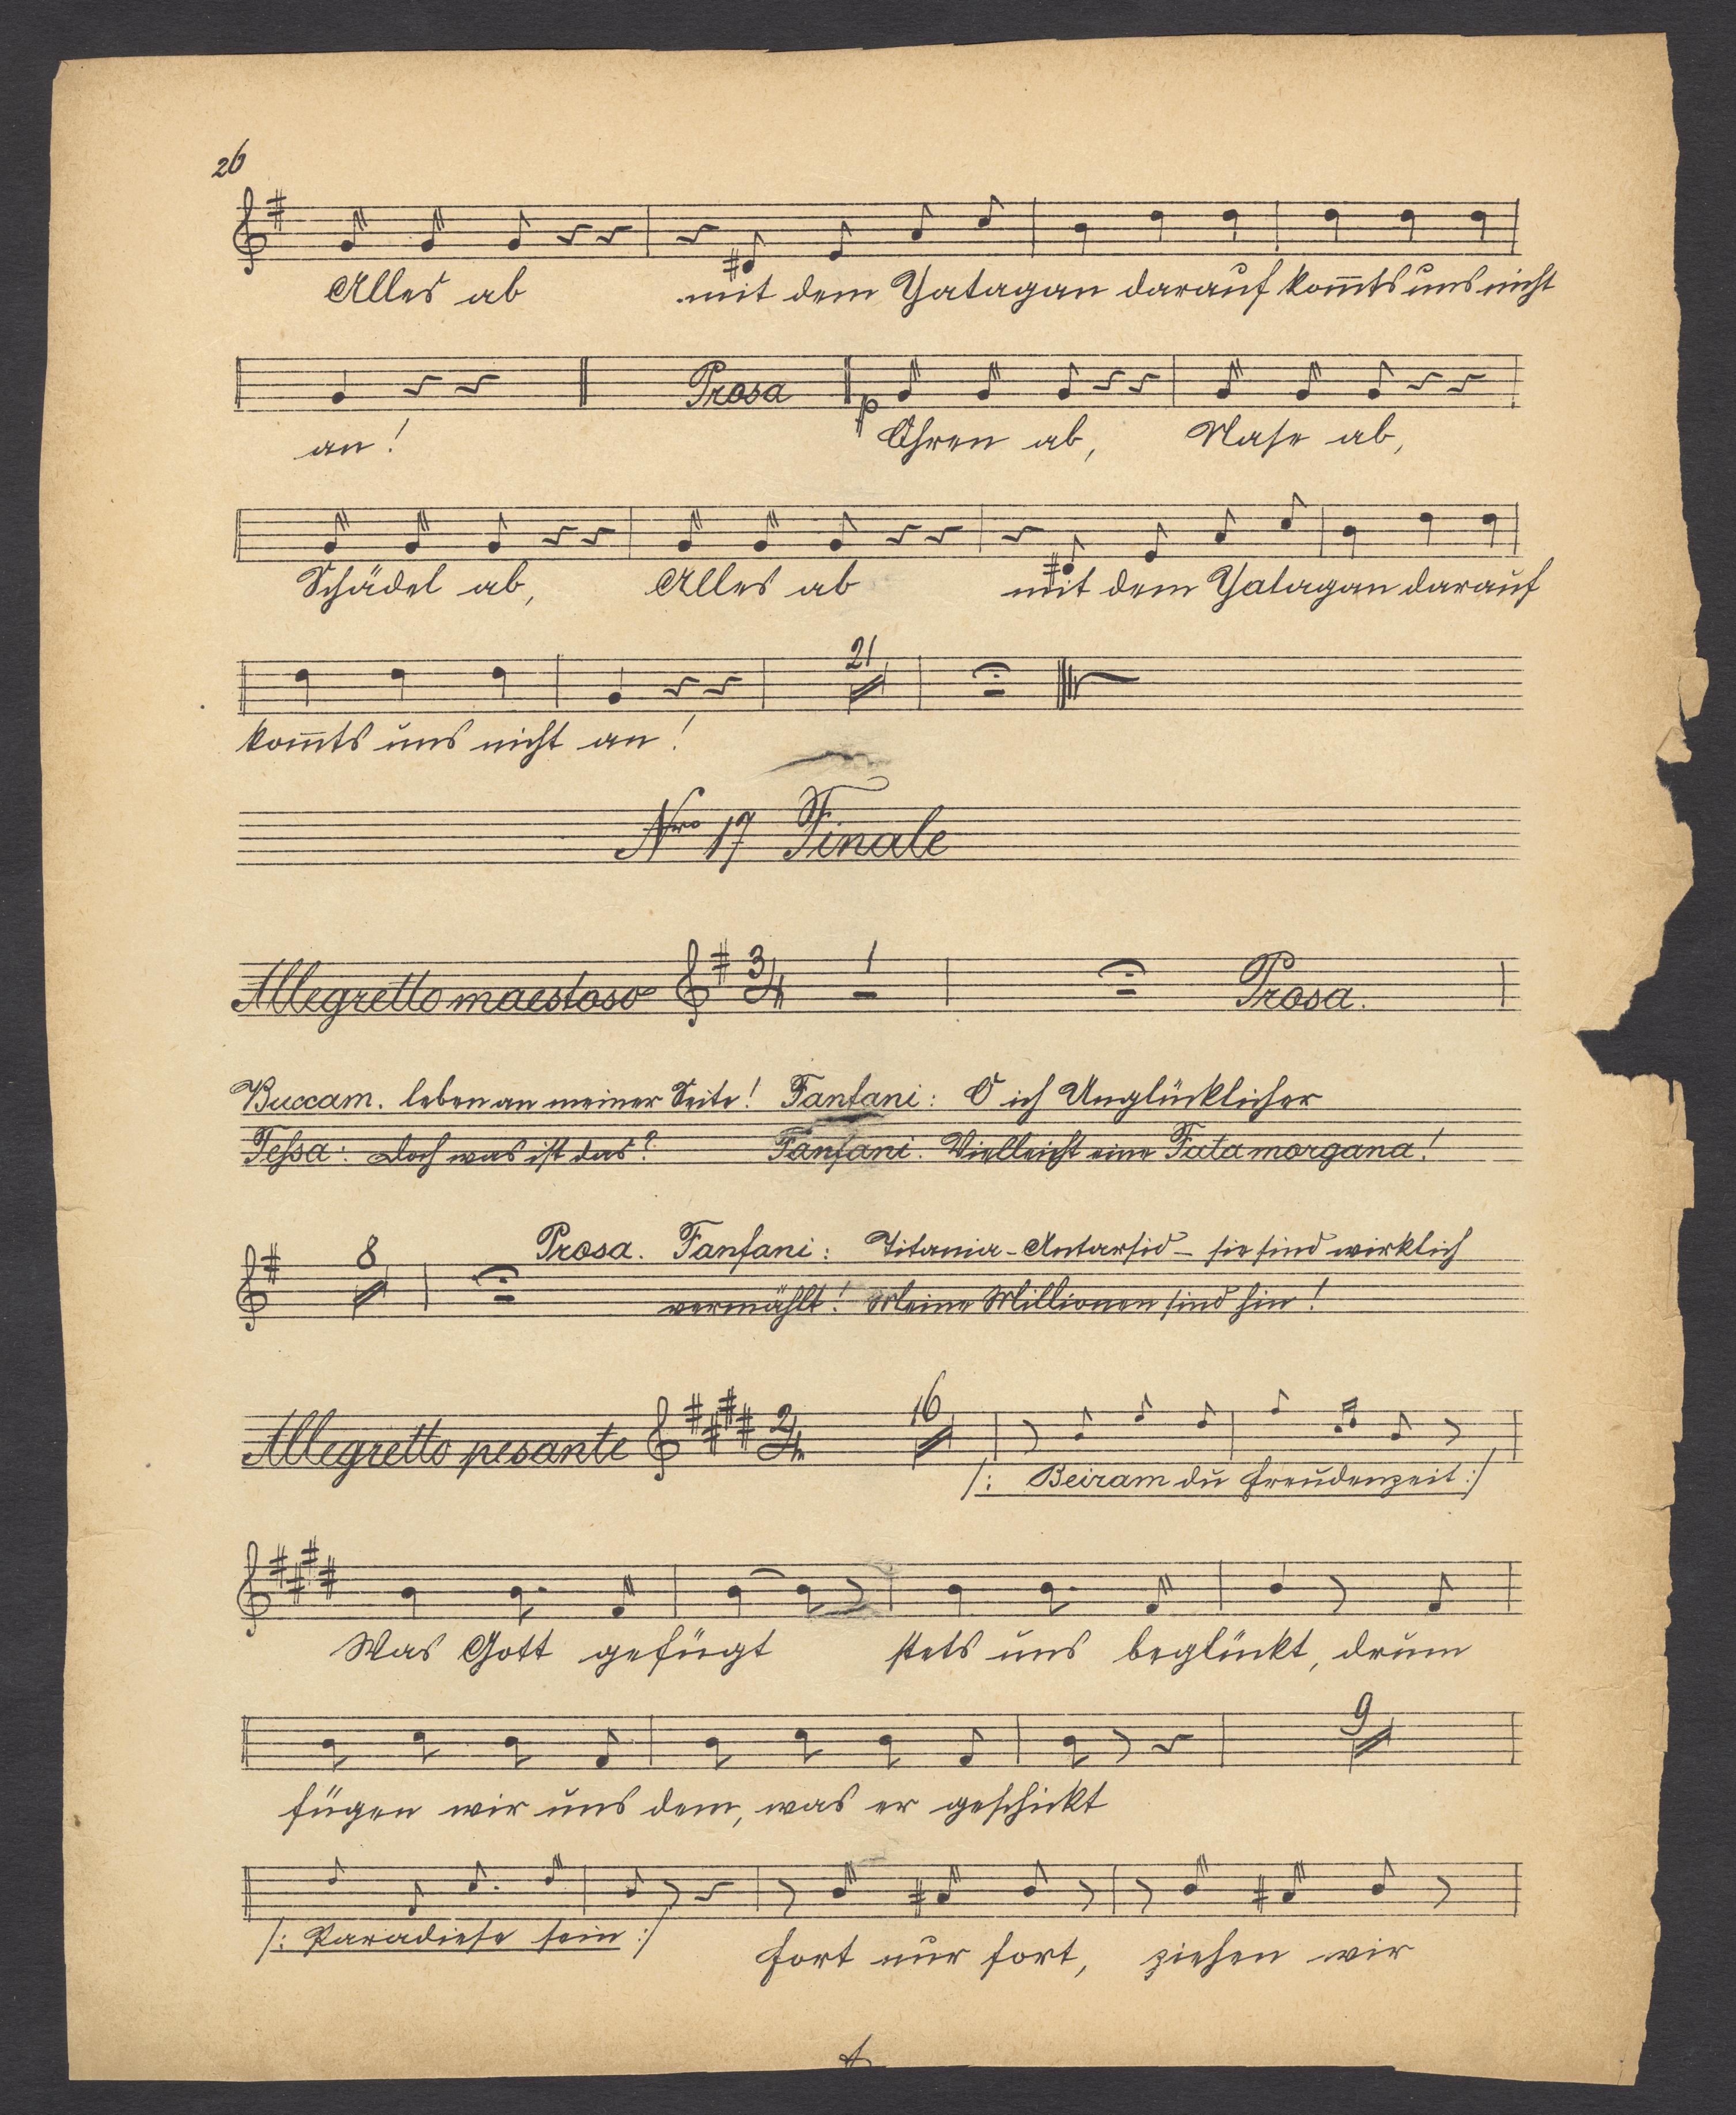 26
Alles ab mit dem Yatagan darauf kom̄ts uns nicht
Prosa
p
an! Ohren ab, Nase ab,
Schädel ab, Alles ab mit dem Yatagan darauf
21
kom̄ts uns nicht an!
Nro 17 Finale
Allegretto maestoso 3/4 1 Prosa.
Buccam. leben an meiner Seite! Fanfani: O ich Unglücklicher
Tessa: Doch was ist das? Fanfani. Vielleicht eine Fata morgana!
8 Prosa. Fanfani: Titania - - sie sind wirklich
vermählt! Meine Millionen sind hin!
Allegretto pesante 2/4 16
/: Beiram du Freudenzeit :/
Was Gott gefügt stets uns beglückt, drum
9
fügen wir uns dem, was er geschickt
/: Paradiese sein :/ Fort nur fort, ziehen wir